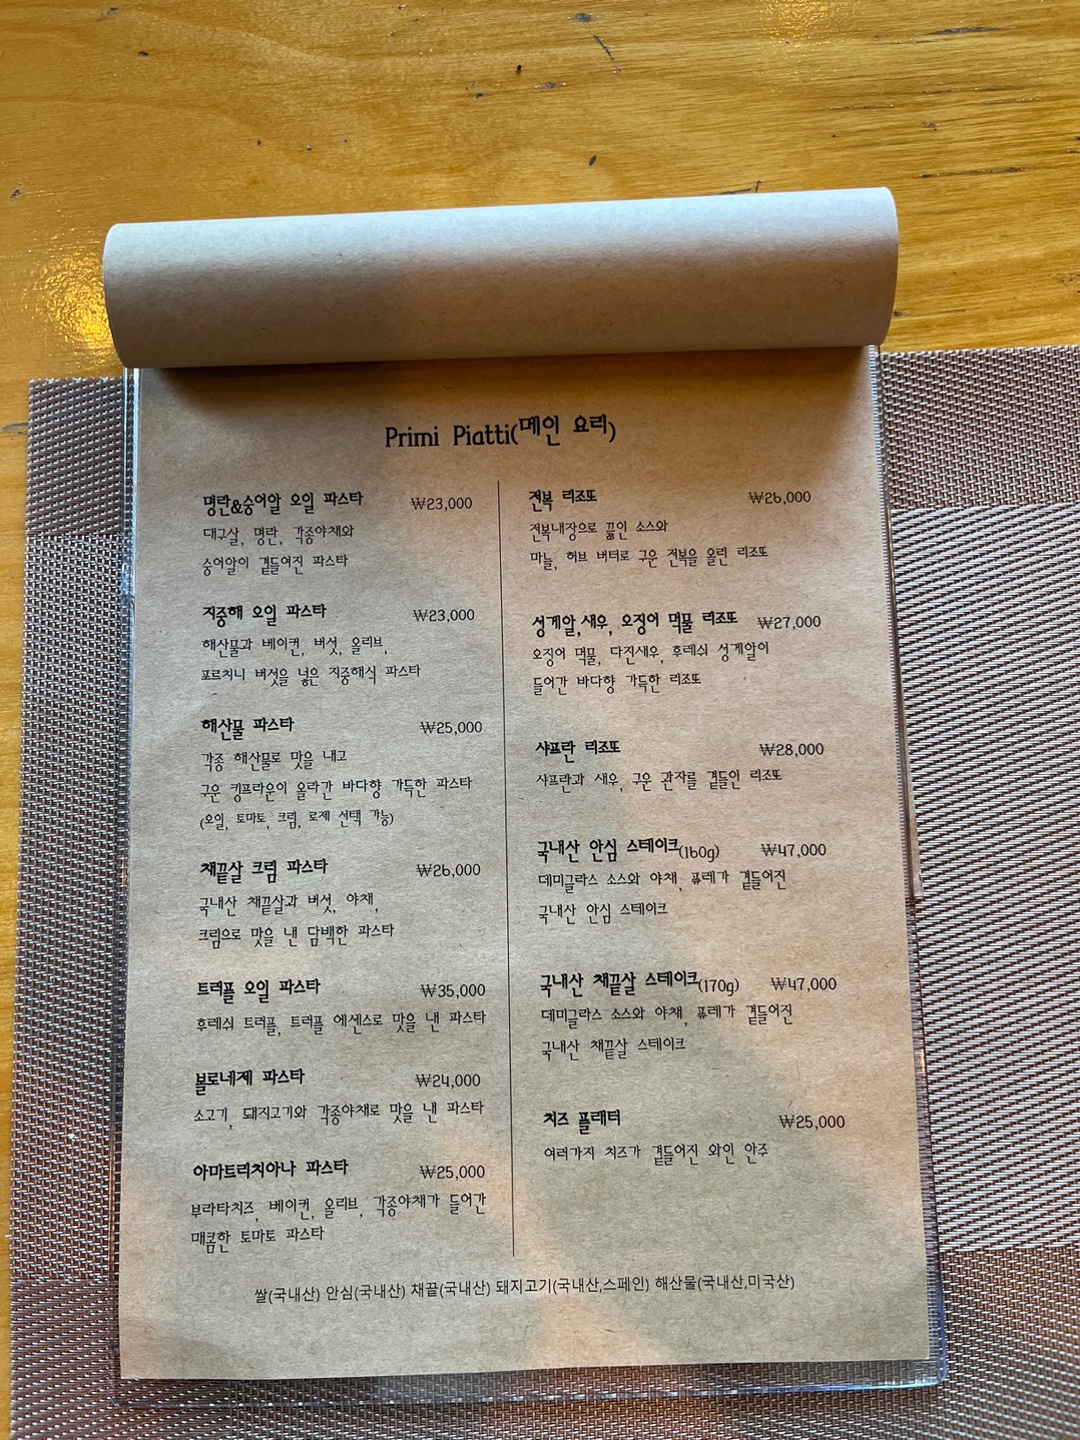 Primi Piatti(메인 요리)
명란&숭어알 오일 파스타 ₩23,000
대구살, 명란, 각종야채와
숭어알이 곁들어진 파스타
지중해 오일 파스타 ₩23,000
해산물과 베이컨, 버섯, 올리브,
포르치니 버섯을 넣은 지중해식 파스타
해산물 파스타 ₩25,000
각종 해산물로 맛을 내고
구운 킹프라운이 올라간 바다향 가득한 파스타
(오일, 토마토, 크림, 로제 선택 가능)
채끝살 크림 파스타 ₩26,000
국내산 채끝살과 버섯, 야채,
크림으로 맛을 낸 담백한 파스타
트러플 오일 파스타 ₩35,000
후레쉬 트러플, 트러플 에센스로 맛을 낸 파스타
볼로네제 파스타 ₩24,000
소고기, 돼지고기와 각종야채로 맛을 낸 파스타
아마트리치아나 파스타 ₩25,000
부라타치즈, 베이컨, 올리브, 각종야채가 들어간
매콤한 토마토 파스타
전복 리조또 ₩26,000
전복내장으로 끓인 소스와
마늘, 허브 버터로 구운 전복을 올린 리조또
성게알,새우, 오징어 먹물 리조또 ₩27,000
오징어 먹물, 다진새우, 후레쉬 성게알이
들어간 바다향 가득한 리조또
샤프란 리조또 ₩28,000
샤프란과 새우, 구운 관자를 곁들인 리조또
국내산 안심 스테이크(160g) ₩47,000
데미글라스 소스와 야채, 퓨레가 곁들어진
국내산 안심 스테이크
국내산 채끝살 스테이크(170g) ₩47,000
데미글라스 소스와 야채, 퓨레가 곁들어진
국내산 채끝살 스테이크
치즈 플래터 ₩25,000
여러가지 치즈가 곁들어진 와인 안주
쌀(국내산) 안심(국내산) 채끝(국내산) 돼지고기(국내산,스페인) 해산물(국내산,미국산)